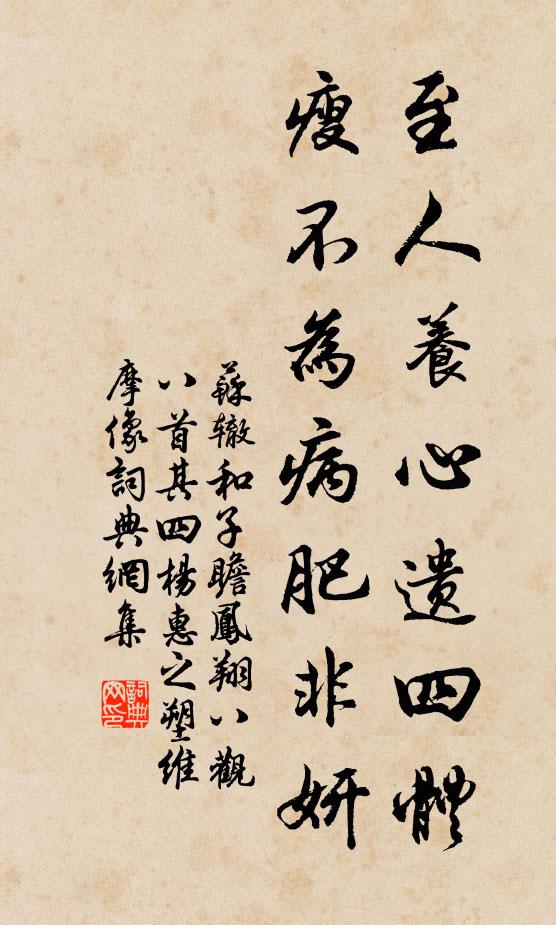 至人養心遺四體
瘦不為病肥非妍
蘇轍和子瞻鳳翔八觀
八首其四楊惠之塑維
摩像詞典網集
詞典網印